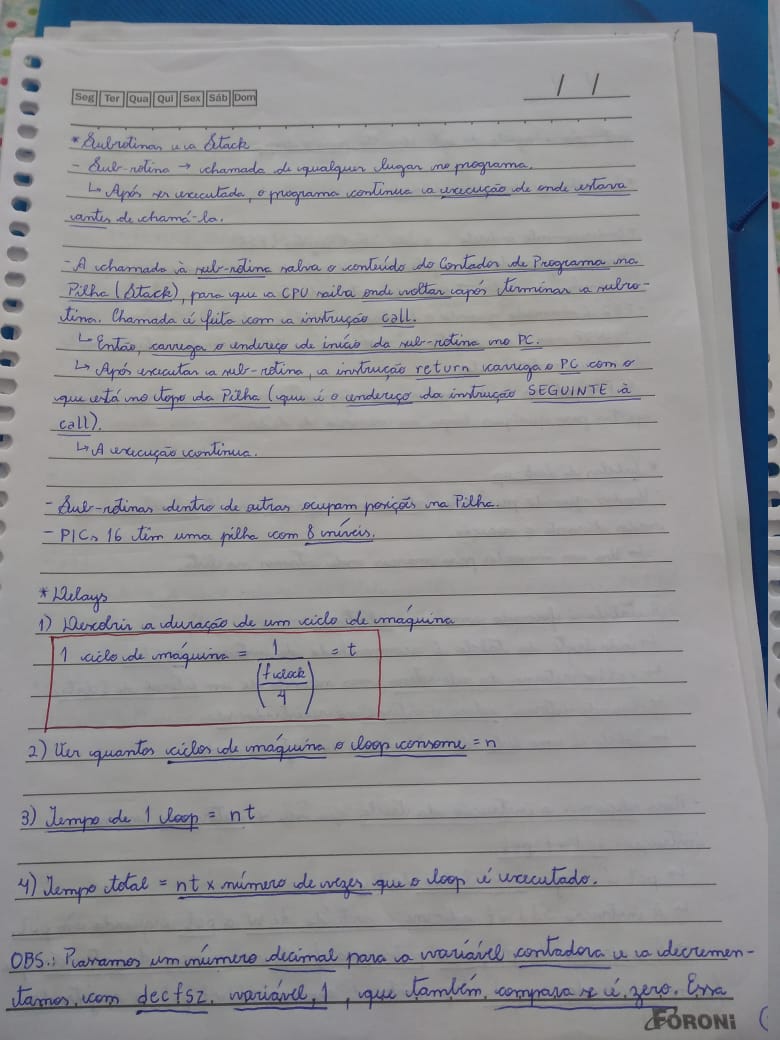 Seg Ter Qua Qui Sex Sáb Dom
/ /
* Subrotinas e a Stack
- Sub-rotina → chamada de qualquer lugar no programa.
↳ Após ser executada, o programa continua a execução de onde estava
antes de chamá-la.
- A chamada à sub-rotina salva o conteúdo do Contador de Programa na
Pilha (Stack), para que a CPU saiba onde voltar após terminar a subro-
tina. Chamada é feita com a instrução call.
↳ Então, carrega o endereço de início da sub-rotina no PC.
↳ Após executar a sub-rotina, a instrução return carrega o PC com o
que está no topo da Pilha (que é o endereço da instrução SEGUINTE à
call).
↳ A execução continua.
- Sub-rotinas dentro de outras ocupam posições na Pilha.
- PICs 16 têm uma pilha com 8 níveis.
* Delays
1) Descobrir a duração de um ciclo de máquina
1 ciclo de máquina = 1 / (fclock / 4) = t
2) Ver quantos ciclos de máquina o loop consome = n
3) Tempo de 1 loop = nt
4) Tempo total = nt x número de vezes que o loop é executado.
OBS.: Passamos um número decimal para a variável contadora e a decremen-
tamos, com decfsz, variável, 1, que também, compara se é, zero. Essa
FORONI